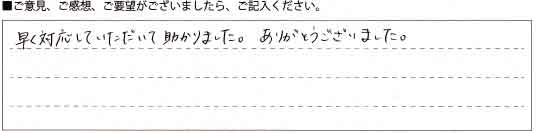 ■ご意見、ご感想、ご要望がございましたら、ご記入ください。
早く対応していただいて助かりました。ありがとうございました。